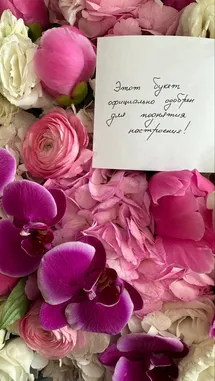 Этот букет
официально одобрен
для поднятия
настроения!